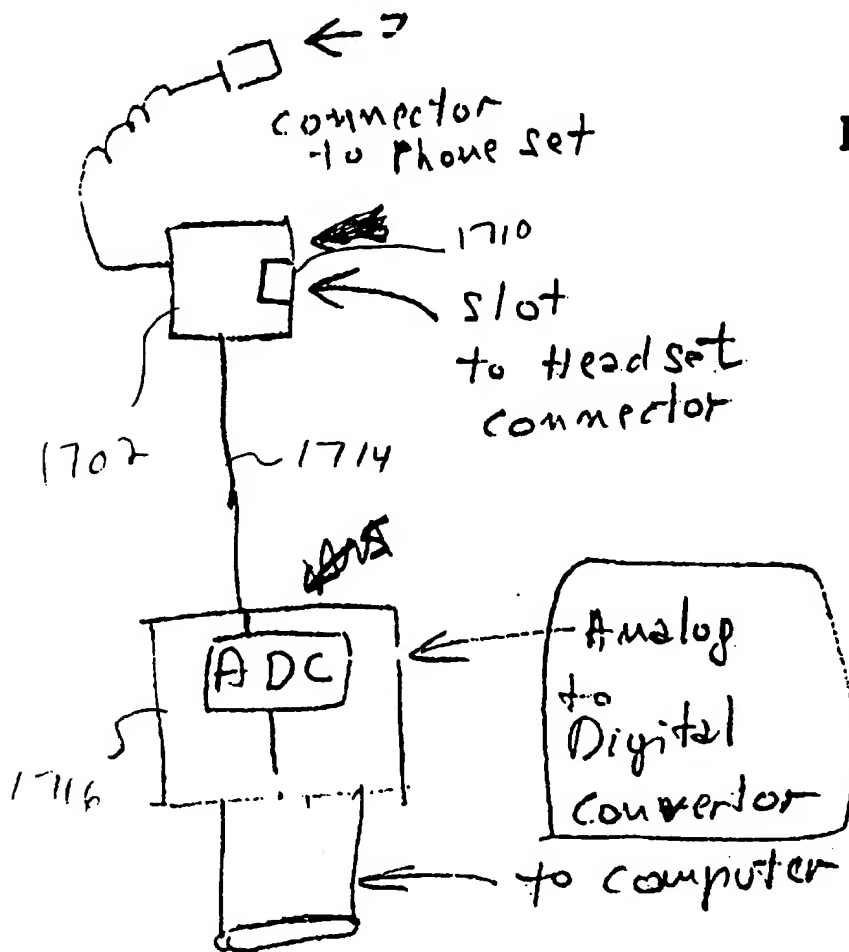 connector
to phone set
1710
slot
to Headset
connector
1702
1714
ADC
Analog
to
Digital
Convertor
1716
to computer